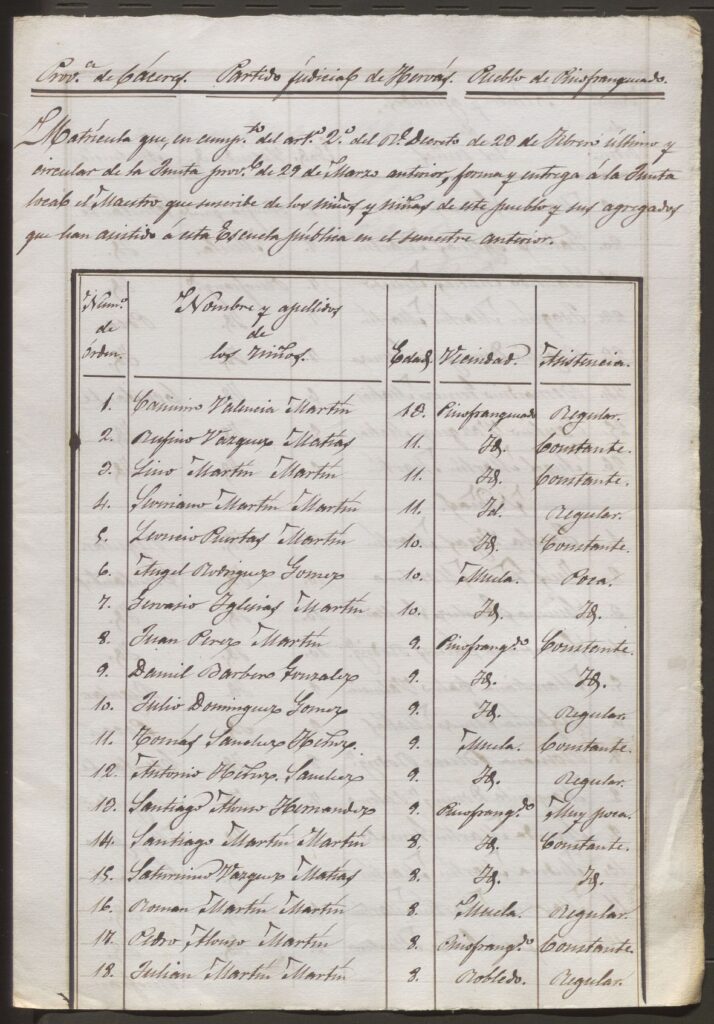 Prov.ª de Cáceres. Partido judicial de Hervás. Pueblo de Pinofranqueado.
Matrícula que, en cump.to del art.º 2.º del R.l Decreto de 20 de Febrero último y
circular de la Junta prov.l de 29 de Marzo anterior, forma y entrega á la Junta
local el Maestro que suscribe de los niños y niñas de este pueblo y sus agregados
que han asistido á esta Escuela pública en el semestre anterior.
Núm.º de órden. Nombre y apellidos de los niños. Edad. Vecindad. Asistencia.
1. Casimiro Valencia Martín 18. Pinofranqueado Regular.
2. Rufino Vazquez Matías 11. Id. Constante.
3. Lino Martín Martín 11. Id. Constante.
4. Severiano Martín Martín 11. Id. Regular.
5. Leoncio Puertas Martín 10. Id. Constante.
6. Angel Rodriguez Gomez 10. Muela. Poca.
7. Gervasio Iglesias Martín 10. Id. Id.
8. Juan Perez Martín 9. Pinofranq.do Constante.
9. Daniel Barbero Gonzalez 9. Id. Id.
10. Julio Dominguez Gomez 9. Id. Regular.
11. Tomás Sanchez Hérnz. 9. Muela. Constante.
12. Antonio Hérnz. Sanchez 9. Id. Regular.
13. Santiago Alonso Hernandez 9. Pinofranq.do Muy poca.
14. Santiago Martín Martín 8. Id. Constante.
15. Saturnino Vazquez Matías 8. Id. Id.
16. Roman Martín Martín 8. Muela. Regular.
17. Pedro Alonso Martín 8. Pinofranq.do Constante.
18. Julian Martín Martín 8. Robledo. Regular.